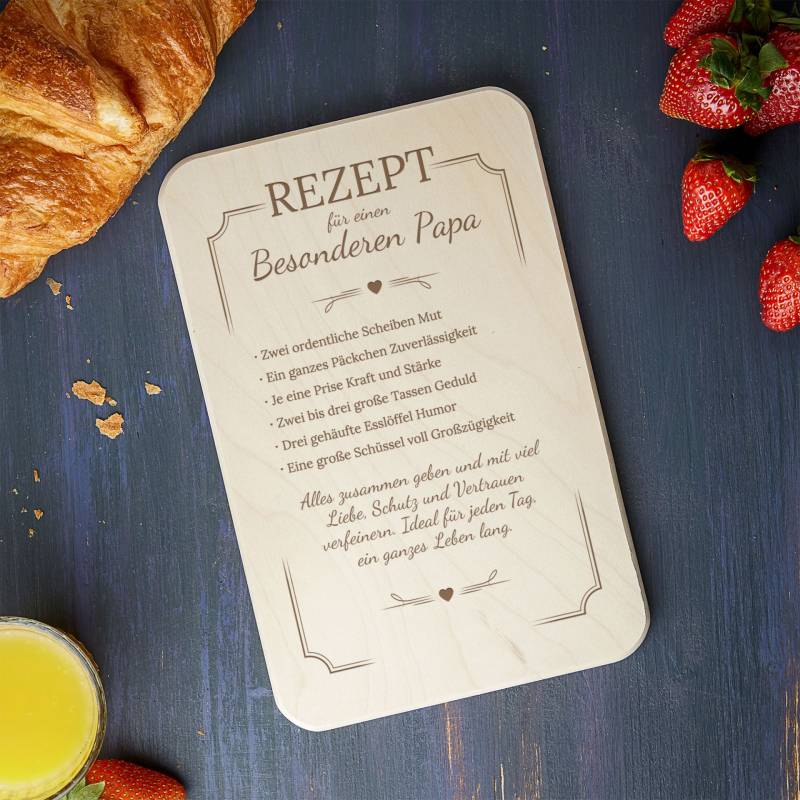 REZEPT
für einen
Besonderen Papa
· Zwei ordentliche Scheiben Mut
· Ein ganzes Päckchen Zuverlässigkeit
· Je eine Prise Kraft und Stärke
· Zwei bis drei große Tassen Geduld
· Drei gehäufte Esslöffel Humor
· Eine große Schüssel voll Großzügigkeit
Alles zusammen geben und mit viel
Liebe, Schutz und Vertrauen
verfeinern. Ideal für jeden Tag,
ein ganzes Leben lang.